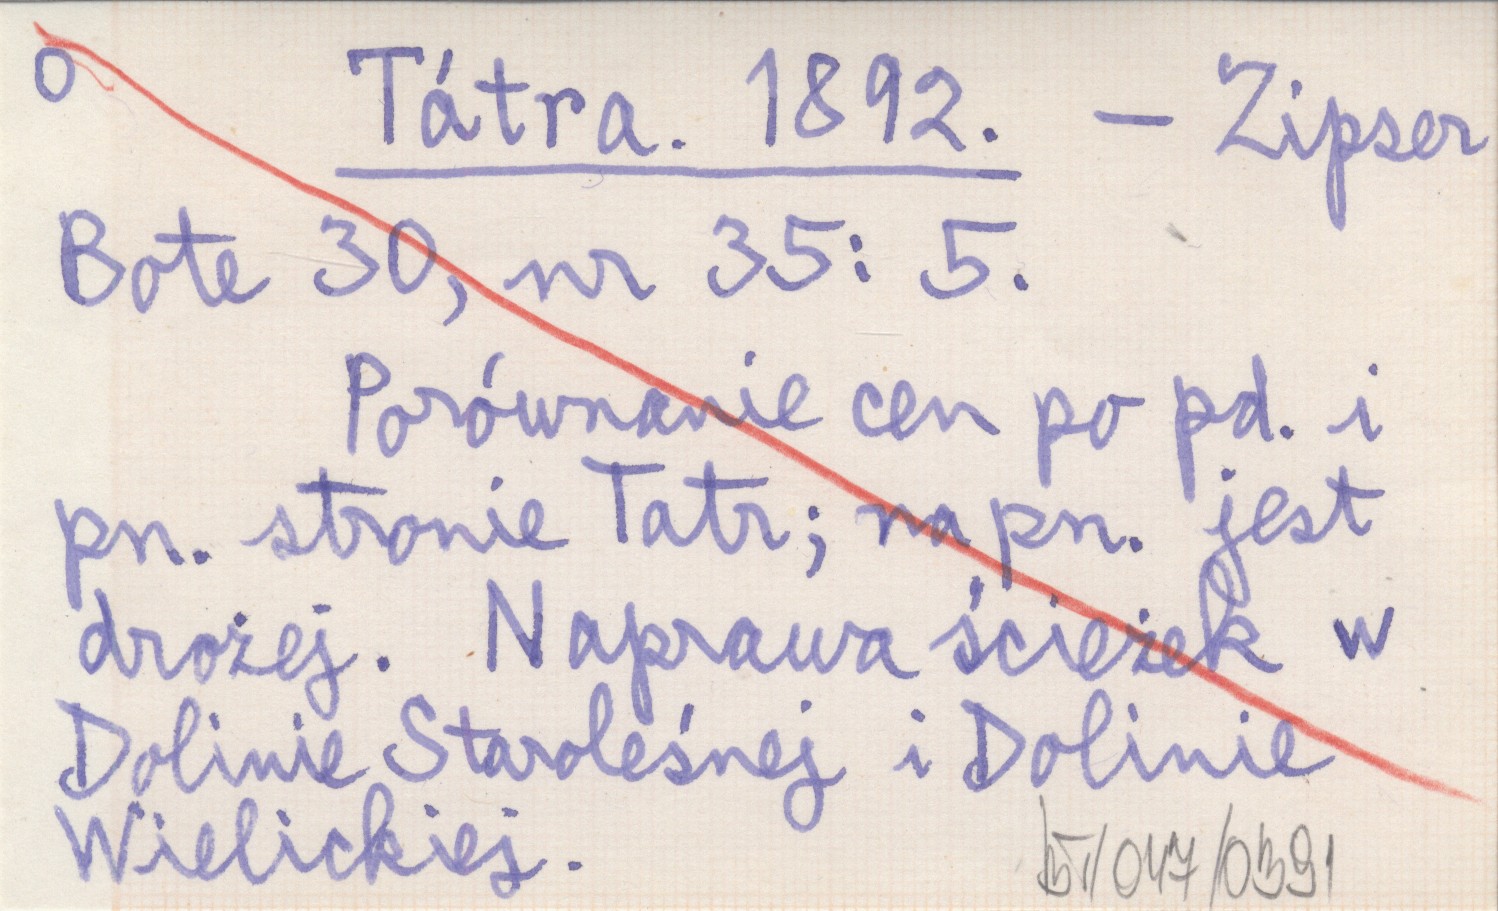 o Tátra. 1892. — Zipser
Bote 30, nr 35: 5.
Porównanie cen po pd. i
pn. stronie Tatr; na pn. jest
drożej. Naprawa ścieżek w
Dolinie Staroleśnej i Dolinie
Wielickiej.
/047/0391